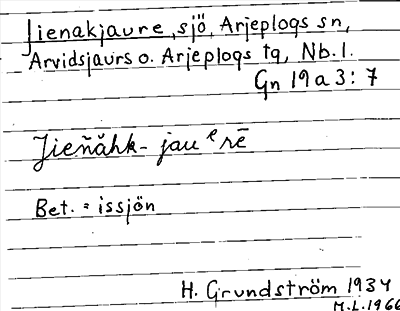 Jienakjaure, sjö, Arjeplogs sn,
Arvidsjaurs o. Arjeplogs tg, Nb. l.
Gn 19 a 3 : 7
Jieñăhk- jau e rē
Bet. = issjön
H. Grundström 1934
M.L. 1966